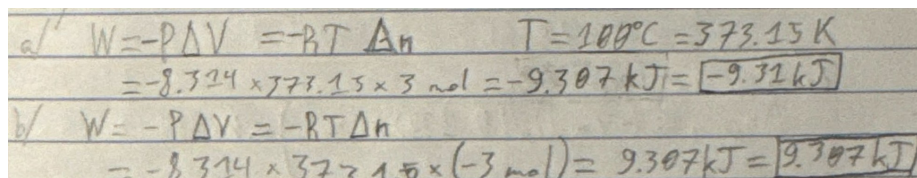 a/ W=-PΔV =-RTΔn T=100°C =373.15K
=-8.314×373.15×3 mol =-9.307 kJ= -9.31kJ
b/ W= -PΔV =-RTΔn
=-8.314×373.15×(-3 mol)= 9.307kJ= 9.307kJ